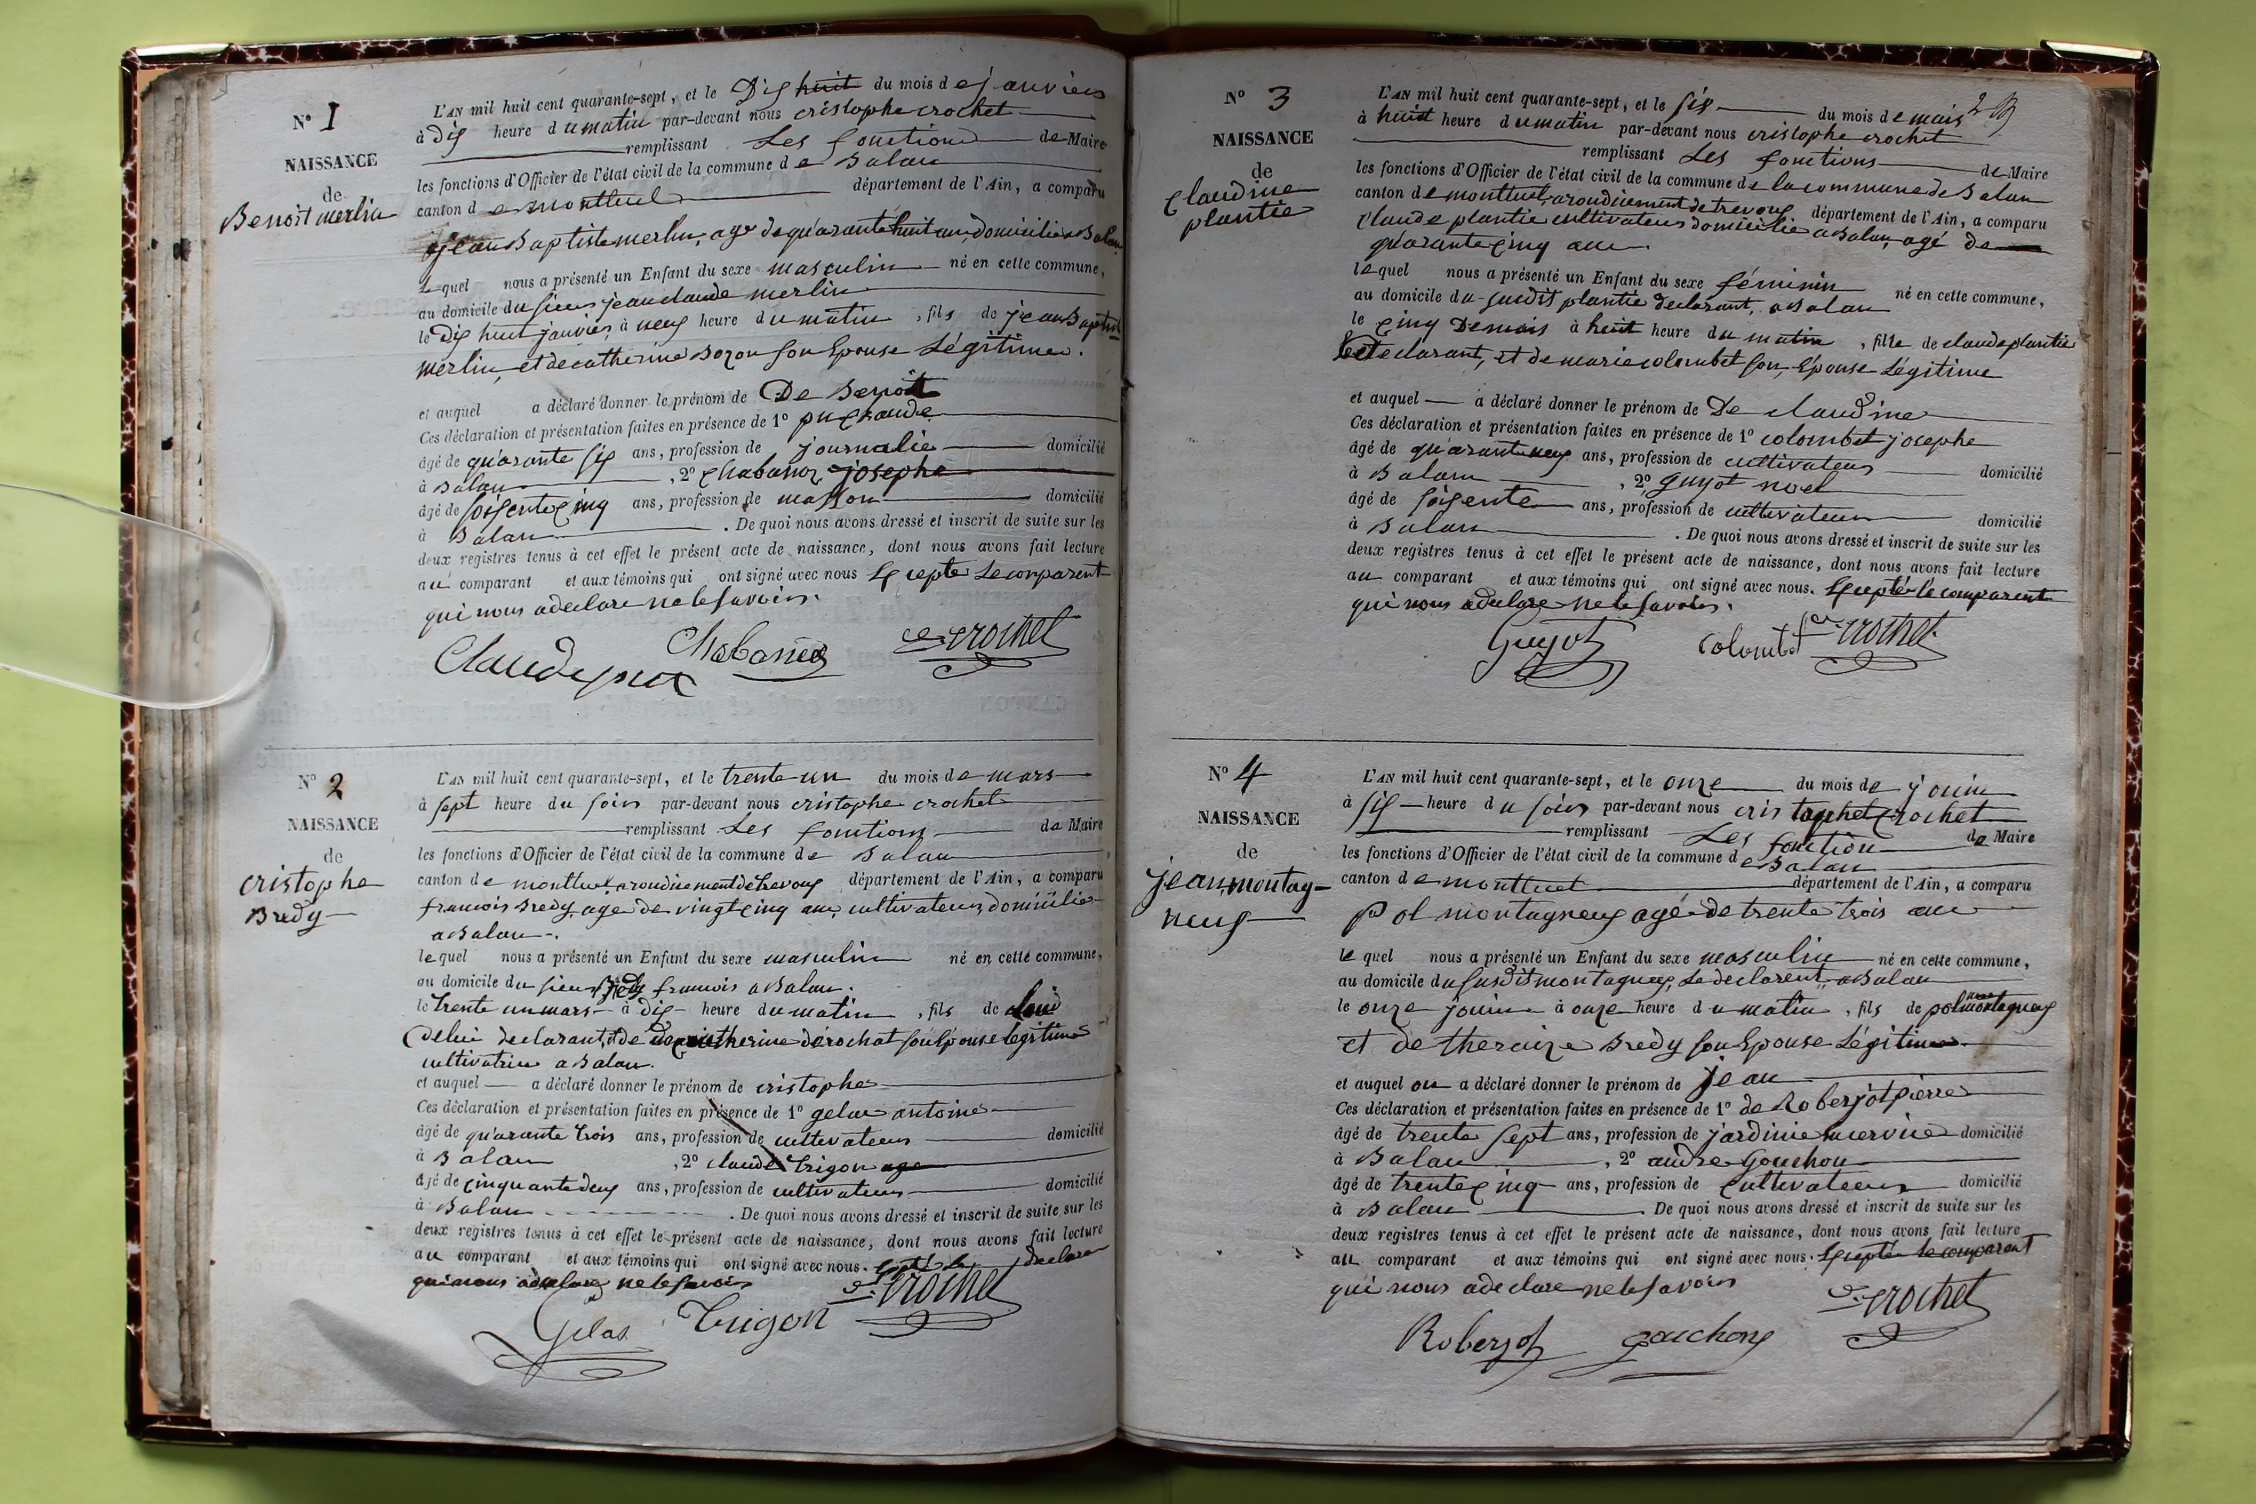 N° 1
NAISSANCE
de
Benoit merlin
L'AN mil huit cent quarante-sept, et le Dix huit du mois de janvier
à dix heure du matin par-devant nous cristophe crochet
remplissant Les fonctions de Maire
les fonctions d'Officier de l'état civil de la commune de Balan
canton de montluel département de l'Ain, a comparu
jean Baptiste merlin, age de quarante huit an, domicilié a Balan
lequel nous a présenté un Enfant du sexe masculin né en cette commune,
au domicile du sieur jean claude merlin
le dix huit janvier à neuf heure du matin, fils de jean Baptiste
merlin, et de catherine Bozon son Epouse Légitime.
et auquel a déclaré donner le prénom de De Benoit
Ces déclaration et présentation faites en présence de 1° claude
âgé de quarante six ans, profession de journalie domicilié
à Balan, 2° Chabanoz josephe
âgé de soisente cinq ans, profession de masson domicilié
à Balan. De quoi nous avons dressé et inscrit de suite sur les
deux registres tenus à cet effet le présent acte de naissance, dont nous avons fait lecture
au comparant et aux témoins qui ont signé avec nous Excepte Le comparent
qui nous a declare ne le savoir.
Claude Chabanoz crochet
N° 2
NAISSANCE
de
cristophe
Bredy
L'AN mil huit cent quarante-sept, et le trente un du mois de mars
à sept heure du soir par-devant nous cristophe crochet
remplissant Les fonctions de Maire
les fonctions d'Officier de l'état civil de la commune de Balan
canton de montluel, arondicement de trevoux département de l'Ain, a comparu
francois Bredy, age de vingt cinq an, cultivateur, domicilie
a Balan.
lequel nous a présenté un Enfant du sexe masculin né en cette commune,
au domicile du sieur Bredy francois a Balan.
le trente un mars à dix heure du matin, fils de
de lui declarant, et de catherine dérochat son Epouse Legitime
cultivatrice a Balan.
et auquel a déclaré donner le prénom de cristophe
Ces déclaration et présentation faites en présence de 1° gelas antoine
âgé de quarante trois ans, profession de cultivateur domicilié
à Balan, 2° claude trigon age
âgé de cinquante deux ans, profession de cultivateur domicilié
à Balan. De quoi nous avons dressé et inscrit de suite sur les
deux registres tenus à cet effet le présent acte de naissance, dont nous avons fait lecture
au comparant et aux témoins qui ont signé avec nous. Excepté Le declaran
qui nous a declare ne le savoir
Gelas Trigon crochet
N° 3
NAISSANCE
de
Claudine
plantie
L'AN mil huit cent quarante-sept, et le six du mois de mais
à huit heure du matin par-devant nous cristophe crochet
remplissant Les fonctions de Maire
les fonctions d'Officier de l'état civil de la commune de la commune de Balan
canton de montluel, arondicement de trevoux département de l'Ain, a comparu
Claude plantie cultivateur domicilié a Balan, agé de
quarante cinq an.
lequel nous a présenté un Enfant du sexe féminin né en cette commune,
au domicile du susdit plantie declarant, a Balan
le cinq De mais à huit heure du matin, fille de claude plantie
declarant, et de marie colombet son, Epouse Légitime
et auquel a déclaré donner le prénom de De claudine
Ces déclaration et présentation faites en présence de 1° colombet josephe
âgé de quarante neuf ans, profession de cultivateur domicilié
à Balan, 2° guyot noel
âgé de soisente ans, profession de cultivateur domicilié
à Balan. De quoi nous avons dressé et inscrit de suite sur les
deux registres tenus à cet effet le présent acte de naissance, dont nous avons fait lecture
au comparant et aux témoins qui ont signé avec nous. Excepté le comparent
qui nous a declare ne le savoir.
Guyot colombet crochet
N° 4
NAISSANCE
de
jean, montag-
neux
L'AN mil huit cent quarante-sept, et le onze du mois de jouin
à six heure du soir par-devant nous cristophe crochet
remplissant Les fonction de Maire
les fonctions d'Officier de l'état civil de la commune de Balan
canton de montluel département de l'Ain, a comparu
pol montagneux agé de trente trois an
lequel nous a présenté un Enfant du sexe masculin né en cette commune,
au domicile du susdit montagneux, Le declarent a Balan
le onze jouin à onze heure du matin, fils de pol montagneux
et de theraize Bredy son Epouse Légitime
et auquel on a déclaré donner le prénom de jean
Ces déclaration et présentation faites en présence de 1° de Roberjot pierre
âgé de trente sept ans, profession de jardinie domicilié
à Balan, 2° andre Gouchon
âgé de trente cinq ans, profession de Cultivateur domicilié
à Balan. De quoi nous avons dressé et inscrit de suite sur les
deux registres tenus à cet effet le présent acte de naissance, dont nous avons fait lecture
au comparant et aux témoins qui ont signé avec nous. Excepté le comparent
qui nous a declare ne le savoir
Roberjot gouchon crochet